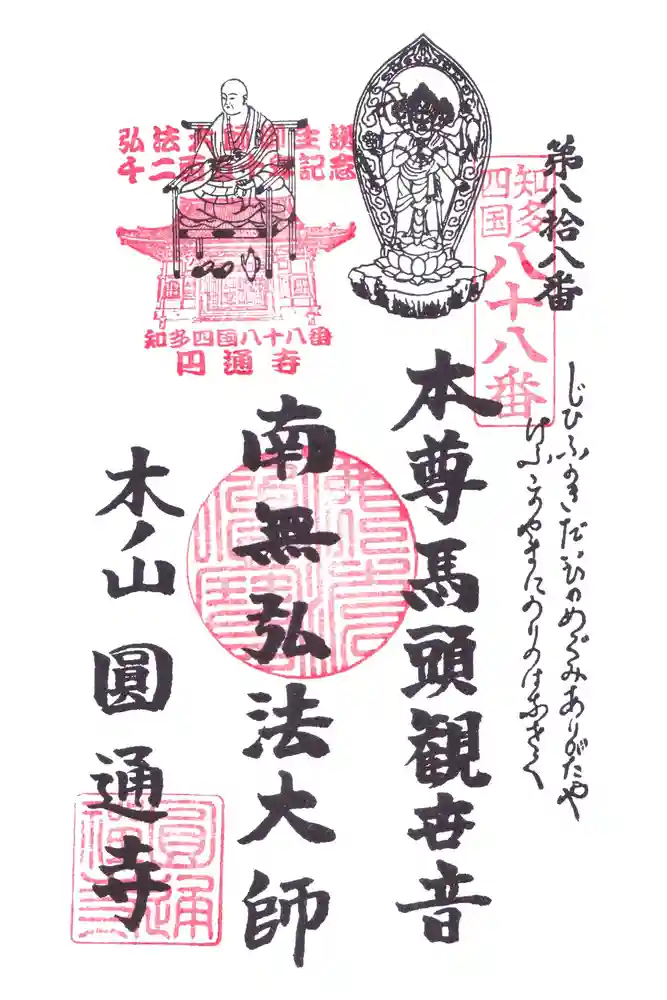 第八拾八番
知多
四国
八十八番
じひふかきだいひのめぐみありがたや
けふこのやまにのりのはなさく
本尊馬頭観世音
弘法大師御生誕
千二百五十年記念
知多四国八十八番
円通寺
南無弘法大師
木ノ山 圓通寺